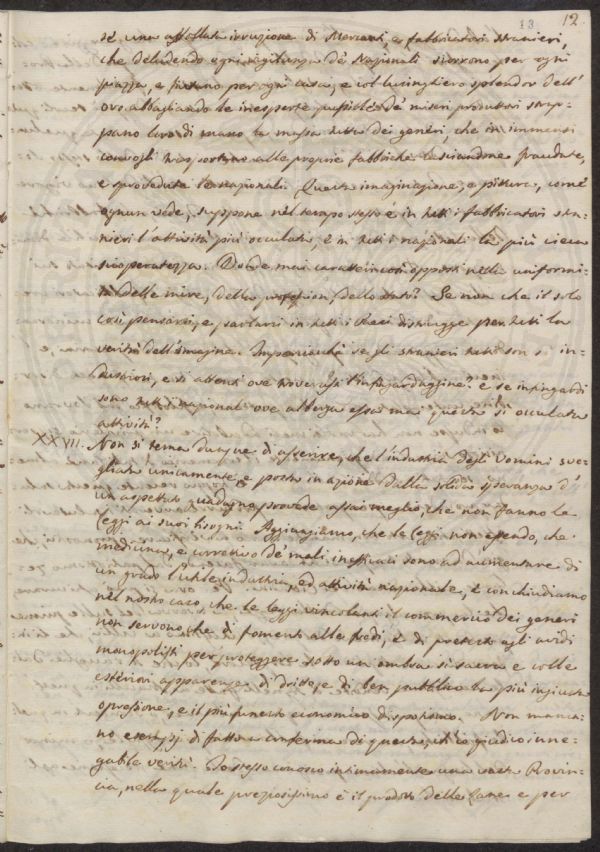 13 12.
se una affollata irruzione di Mercanti, e fabbricatori stranieri,
che deludendo ogni vigilanza de' Nazionali scorrono per ogni
piazza, e per ogni casa, e col lusinghiero splendor dell'
oro abbagliando le inesperte pupille de' miseri produttori strap-
pano loro di mano la massa tutta dei generi, che in immensi
convogli trasportano alle proprie fabbriche lasciandone fraudate,
e sprovedute le nazionali. Questa imaginazione, e pittura, com'è
ognun vede, suppone nel tempo stesso e in tutti i fabbricatori stra-
nieri l'attività più occulata, e in tutti i nazionali la più cieca
scioperatezza. Donde mai caratteri così opposti nella uniformi-
tà delle mire, della profession, dello stato? Se non che il solo
così pensarsi, e parlarsi in tutti i Paesi distrugge per tutti la
verità dell'imagine. Imperciochè se gli stranieri tutti son sì in-
dustriosi, e sì attenti ove troverassi l'infingardaggine? e se infingardi
sono tutti i nazionali ove alberga essa mai questa sì occulata
attività?
XXVII. Non si tema dunque di asserire, che l'industria degli Uomini sve-
gliata unicamente, e posta in azione dalla solida speranza d'
un aspettato guadagno provede assai meglio, che non fanno le
Leggi ai suoi bisogni. Aggiungiamo, che le Leggi non essendo, che
medicina, e correttivo de' mali inefficaci sono ad aumentare di
un grado l'utile industria, ed attività nazionale, e conchiudiamo
nel nostro caso, che le leggi vincolanti il commercio dei generi
non servono, che di fomento alle frodi, e di pretesto agli avidi
monopolisti per proteggere sotto un ombra sì sacra e colle
esteriori apparenze di dritto, e di ben pubblico la più ingiusta
opressione, e il più funesto economico dispotismo. Non manca-
no esempj di fatto a conferma di questa, ch'io giudico inne-
gabile verità. Io stesso conosco intimamente una vasta Provin-
cia, nella quale preziosissimo è il prodotto delle Lane e per